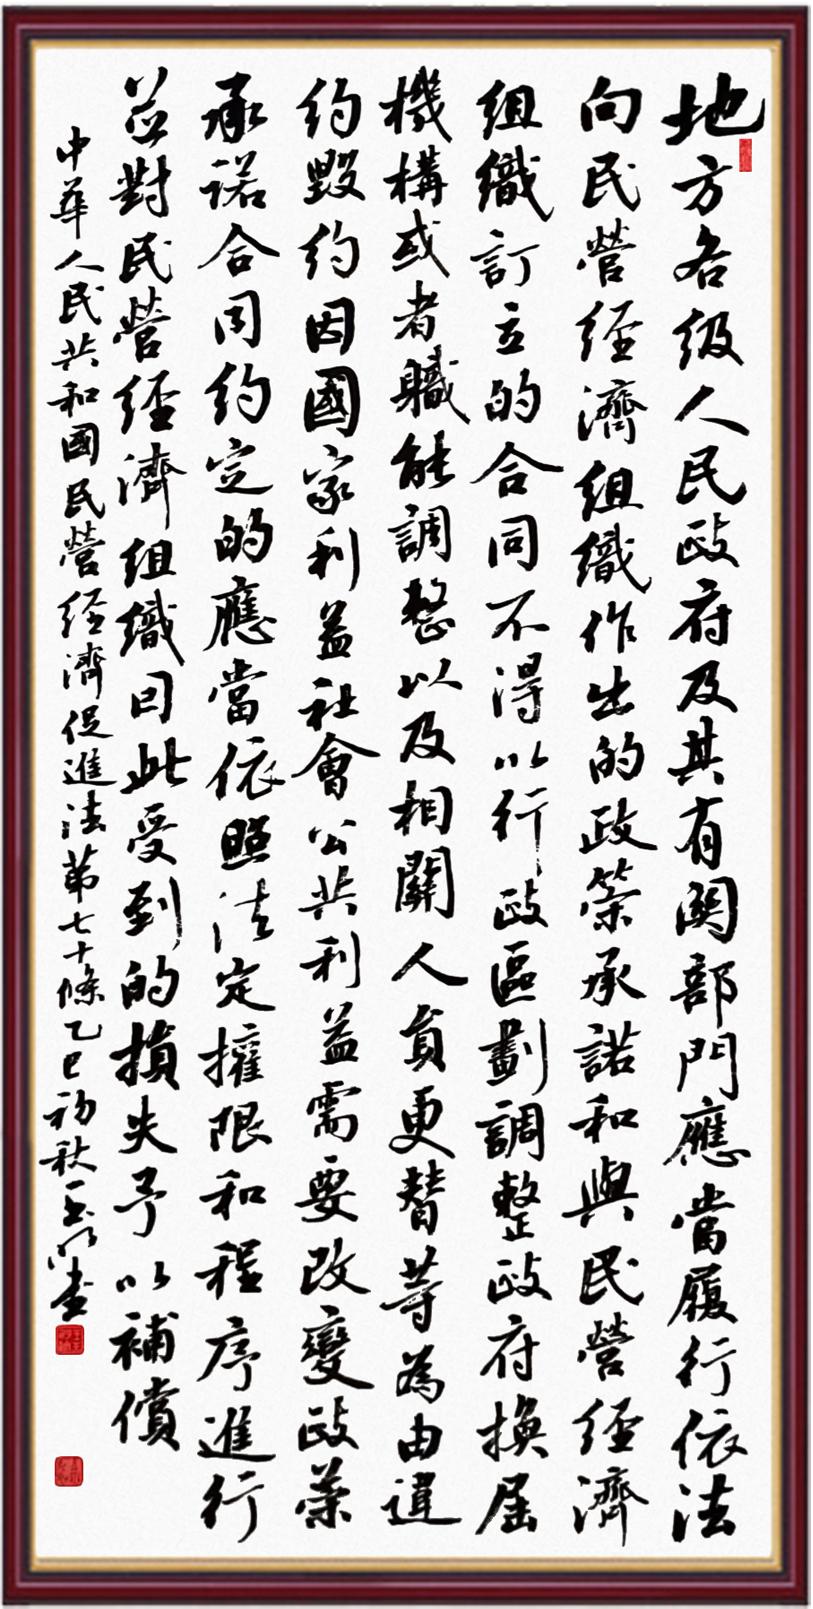 地方各级人民政府及其有関部門應當履行依法
向民營經濟組織作出的政策承諾和與民營經濟
組織訂立的合同不得以行政區劃調整政府換屆
機構或者職能調整以及相關人員更替等為由違
約毀約因國家利益社會公共利益需要改變政策
承諾合同約定的應當依照法定權限和程序進行
並對民營經濟組織因此受到的損失予以補償
中華人民共和國民營經濟促進法第七十條乙巳初秋玉明書